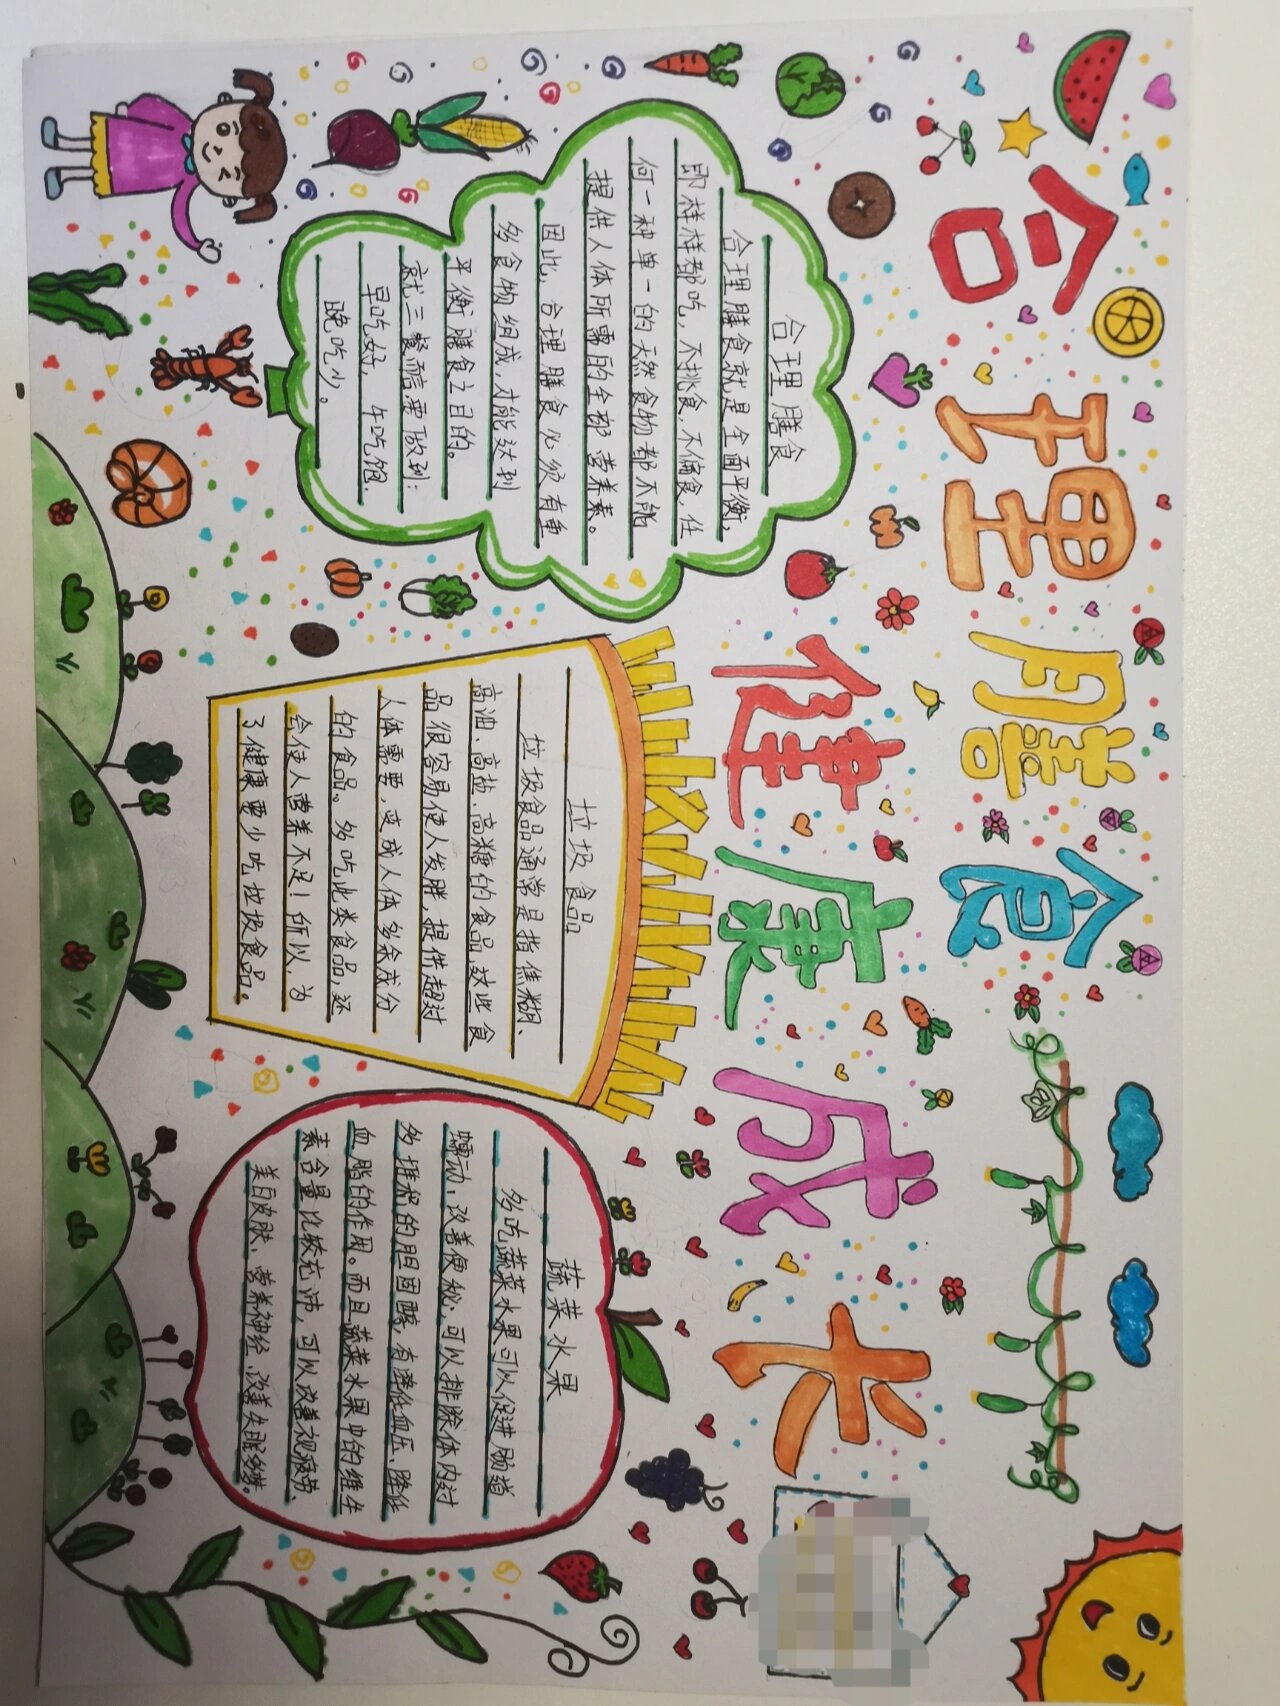 合理膳食
健康成长
合理膳食
合理膳食就是全面平衡,
即样样都吃,不挑食,不偏食,任
何一种单一的天然食物都不能
提供人体所需的全部营养素。
因此,合理膳食必须有重
多食物组成,才能达到
平衡膳食之目的。
就三餐而言要做到:
早吃好,午吃饱,
晚吃少。
垃圾食品
垃圾食品通常是指焦糊、
高油、高盐、高糖的食品,这些食
品很容易使人发胖,提件超过
人体需要,变成人体多余成分
的食品。多吃此类食品,还
会使人营养不足!所以,为
了健康要少吃垃圾食品。
蔬菜水果
多吃蔬菜水果可以促进肠道
蠕动、改善便秘,可以排除体内过
多堆积的胆固醇,有降低血压、降低
血脂的作用。而且蔬菜水果中的维生
素含量比较充沛,可以改善视疲劳、
美白皮肤、营养神经、改善失眠多梦。